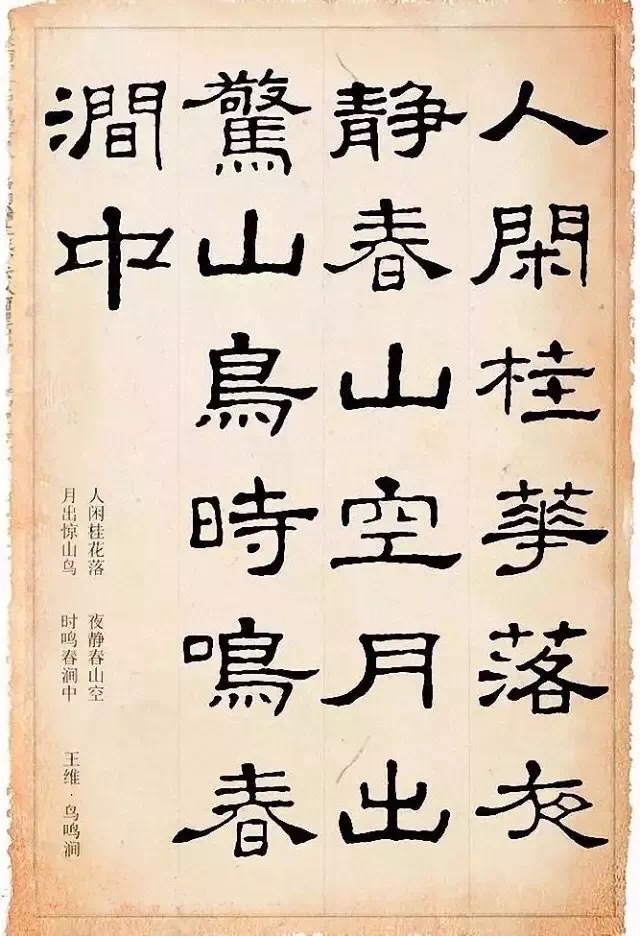 人閑桂華落夜
静春山空月出
驚山鳥時鳴春
澗中
人闲桂花落 夜静春山空
月出惊山鸟 时鸣春涧中
王维·鸟鸣涧